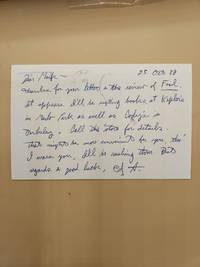 25 Oct 88
Dear
for your letter & the review of Fool.
It appears I'll be signing books at Kepler's
in Menlo Park as well as Cody's in
Berkeley. Call the store for details.
That might be more convenient for you, tho'
I warn you, I'll be rushing thru. Best
regards & good luck,